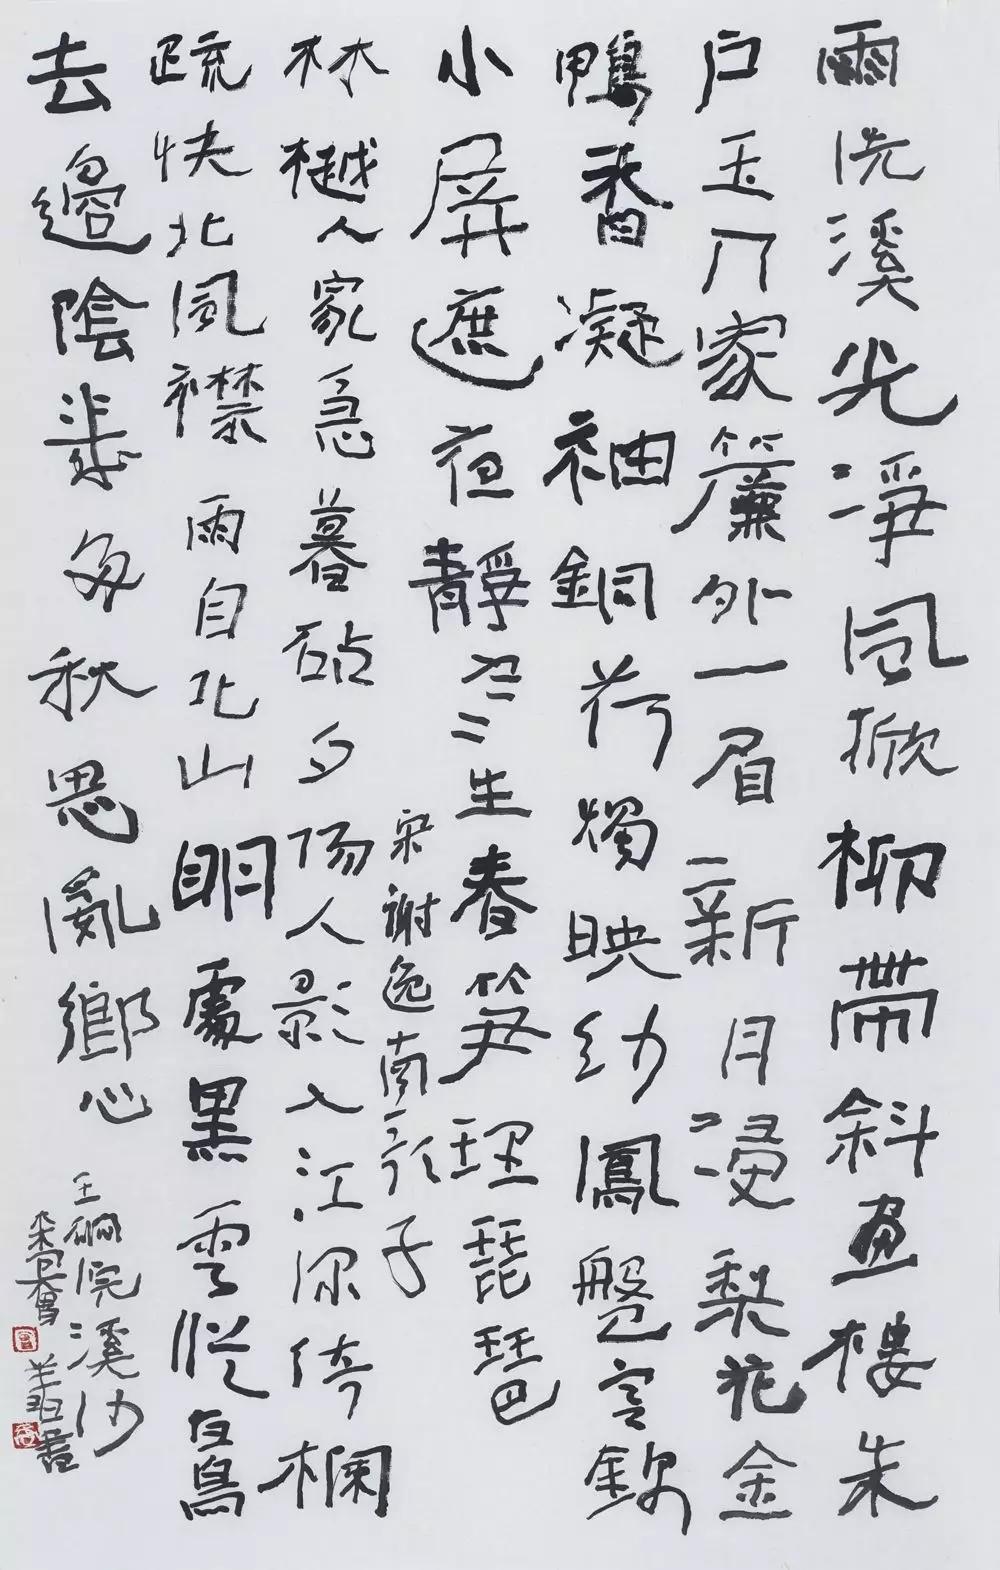 雨洗溪光淨風掀柳帶斜畫樓朱
户玉人家簾外一眉新月浸梨花金
鴨香凝袖銅荷燭映紗鳳盤宮錦
小屏遮夜靜寒生春笋理琵琶
宋謝逸南歌子
林樾人家急暮砧夕陽人影入江深倚欄
疏快北風襟雨自北山明處黑雲從白鳥
去邊陰幾多秋思亂鄉心
王磵浣溪沙
曾翔書